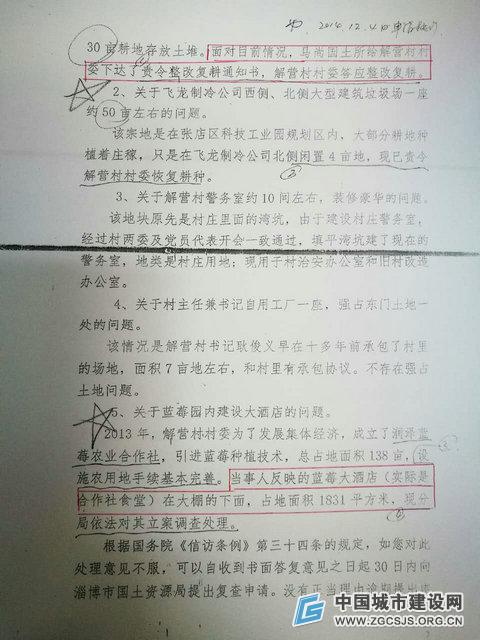 2014.12.4日
30亩耕地存放土堆。面对目前情况，马尚国土所给解营村村
委下达了责令整改复耕通知书，解营村村委答应整改复耕。
2、关于飞龙制冷公司西侧、北侧大型建筑垃圾场一座
约50亩左右的问题。
该宗地是在张店区科技工业园规划区内，大部分耕地种
植着庄稼，只是在飞龙制冷公司北侧闲置4亩地，现已责令
解营村村委恢复耕种。
3、关于解营村警务室约10间左右，装修豪华的问题。
该地块原先是村庄里面的湾坑，由于建设村庄警务室，
经过村两委及党员代表开会一致通过，填平湾坑建了现在的
警务室，地类是村庄用地；现用于村治安办公室和旧村改造
办公室。
4、关于村主任兼书记自用工厂一座，强占东门土地一
处的问题。
该情况是解营村书记耿俊义早在十多年前承包了村里
的场地，面积7亩地左右，和村里有承包协议。不存在强占
土地问题。
5、关于蓝莓园内建设大酒店的问题。
2013年，解营村村委为了发展集体经济，成立了润泽蓝
莓农业合作社，引进蓝莓种植技术，总占地面积138亩，设
施农用地手续基本完善。当事人反映的蓝莓大酒店（实际是
合作社食堂）在大棚的下面，占地面积1831平方米，现分
局依法对其立案调查处理。
根据国务院《信访条例》第三十四条的规定，如您对此
处理意见不服，可以自收到书面答复意见之日起30日内向
淄博市国土资源局提出复查申请。没有正当理由逾期提出
中国城市建设网
WWW.ZGCSJS.ORG